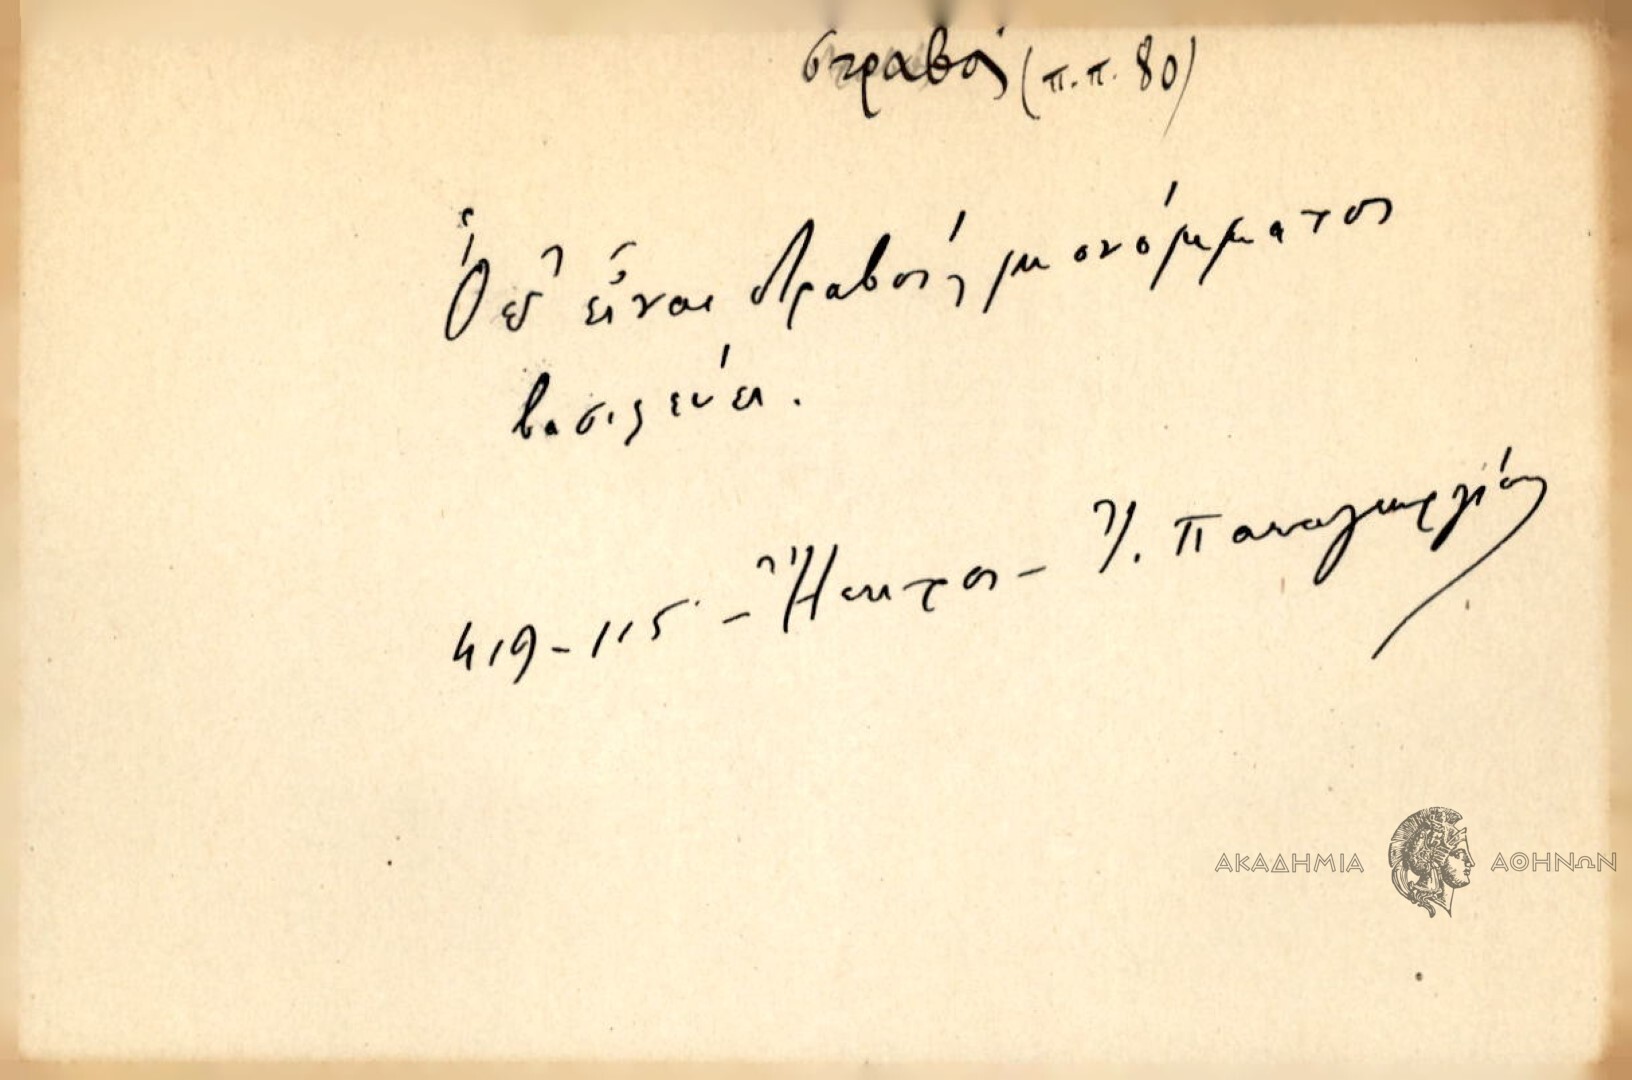 στραβός (π.π. 80)
Ὅθ' εἶναι στραβοί, μονόμματος
βασιλεύει.
419-115 - Ἤπειρος - Ἰ. Παπαγεωργίου
ΑΚΑΔΗΜΙΑ ΑΘΗΝΩΝ